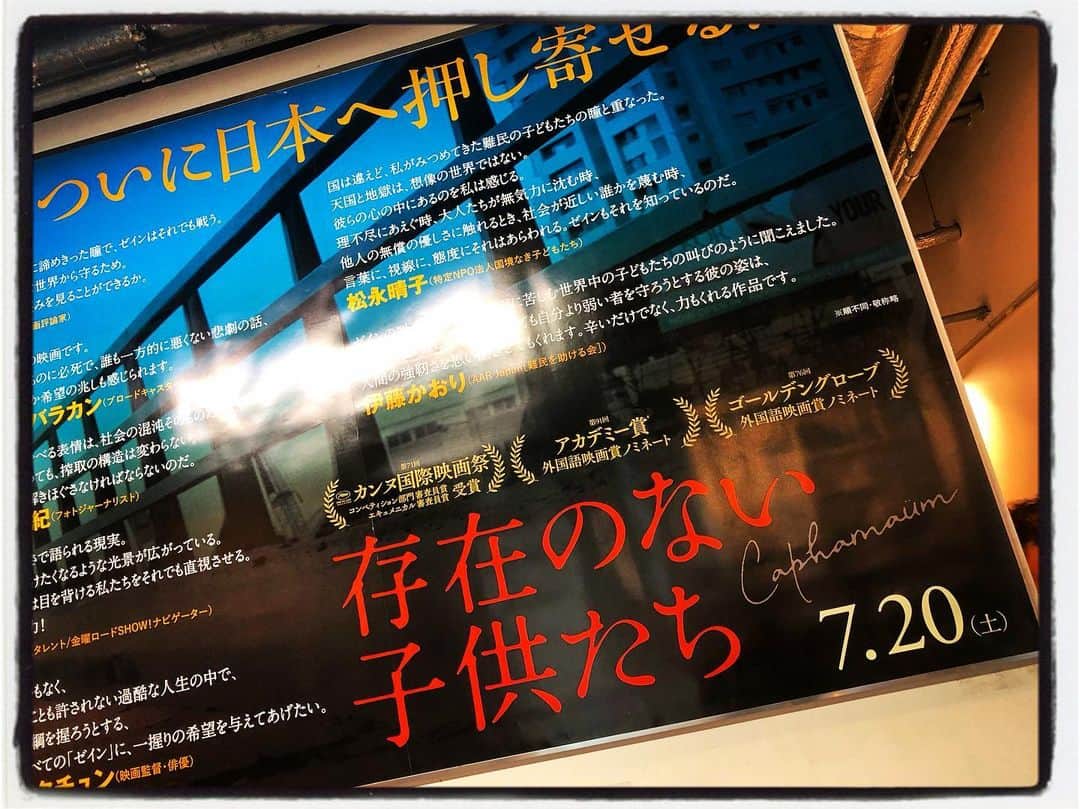 ついに日本へ押し寄せる
諦めきった瞳で、ゼインはそれでも戦う。
世界から守るため。
みを見ることができるか。
画評論家)
の映画です。
のに必死で、誰も一方的に悪くない悲劇の話、
か希望の兆しも感じられます。
バラカン(ブロードキャスタ
べる表情は、社会の混沌そのものだ
っても、搾取の構造は変わらない
解きほぐさなければならないのだ。
紀(フォトジャーナリスト)
で語られる現実。
けたくなるような光景が広がっている。
は目を背ける私たちをそれでも直視させる。
力!
タレント/金曜ロードSHOW!ナビゲーター)
もなく、
ことも許されない過酷な人生の中で、
綱を握ろうとする、
べての「ゼイン」に、一握りの希望を与えてあげたい。
クチュン(映画監督・俳優)
国は違えど、私がみつめてきた難民の子どもたちの瞳と重なった。
天国と地獄は、想像の世界ではない。
彼らの心の中にあるのを私は感じる。
理不尽にあえぐ時、大人たちが無気力に沈む時、
他人の無償の優しさに触れるとき、社会が近しい誰かを蔑む時、
言葉に、視線に、態度にそれはあらわれる。ゼインもそれを知っているのだ。
松永晴子(特定NPO法人国境なき子どもたち)
に苦しむ世界中の子どもたちの叫びのように聞こえました。
も自分より弱い者を守ろうとする彼の姿は、
人間の強靭さを思い
させてもくれます。辛いだけでなく、力もくれる作品です。
伊藤かおり(AAR Japan[難民を助ける会])
※順不同・敬称略
YOUR
第71回
カンヌ国際映画祭
コンペティション部門審査員賞
エキュメニカル審査員賞 受賞
第91回
アカデミー賞®
外国語映画賞ノミネート
第76回
ゴールデングローブ
外国語映画賞ノミネート
存在のない
子供たち
Capharnaüm
7.20(土)